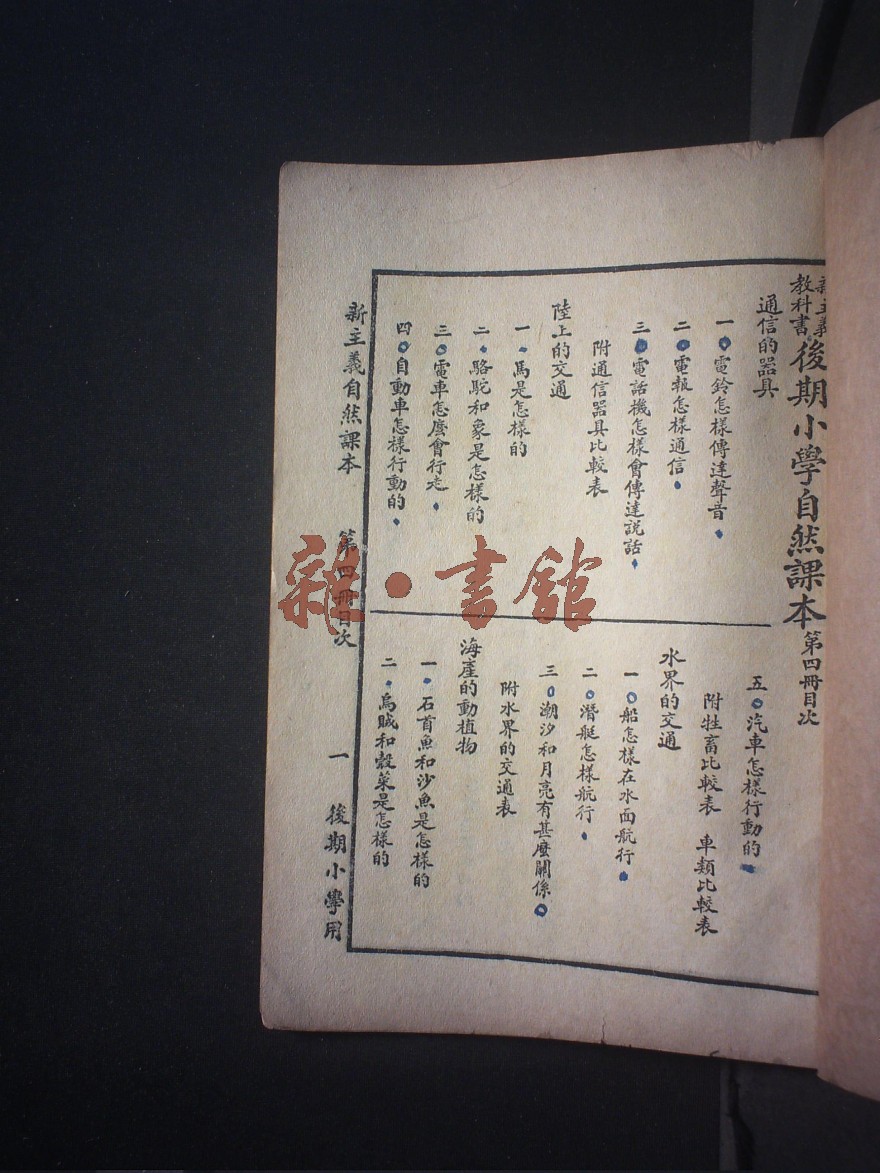 新主義
教科書
後期小學自然課本 第四冊目次
通信的器具
一 電鈴怎樣傳達聲音
二 電報怎樣通信
三 電話機怎樣會傳達説話
附通信器具比較表
陸上的交通
一 馬是怎樣的
二 駱駝和象是怎樣的
三 電車怎麼會行走
四 自動車怎樣行動的
五 汽車怎樣行動的
附牲畜比較表 車類比較表
水界的交通
一 船怎樣在水面航行
二 潛艇怎樣航行
三 潮汐和月亮有甚麼關係
附水界的交通表
海產的動植物
一 石首魚和沙魚是怎樣的
二 烏賊和殼菜是怎樣的
新主義自然課本 第四冊目次 一 後期小學用
雜·書舘